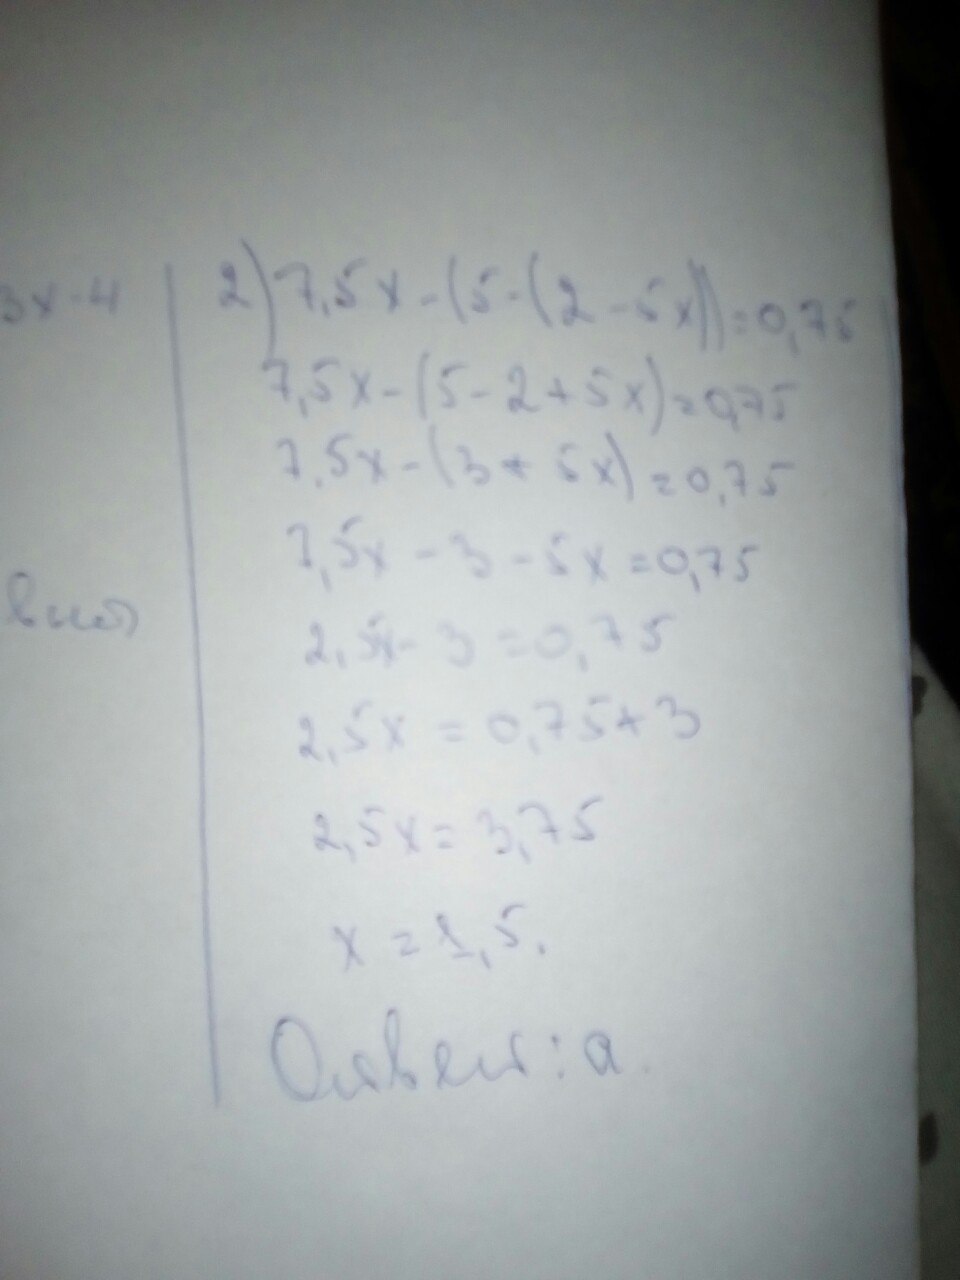 3x-4
2) 7,5x-(5-(2-5x))=0,75
7,5x-(5-2+5x)=0,75
7,5x-(3+5x)=0,75
7,5x-3-5x=0,75
2,5x-3=0,75
2,5x=0,75+3
2,5x=3,75
x=1,5.
Ответ: а.